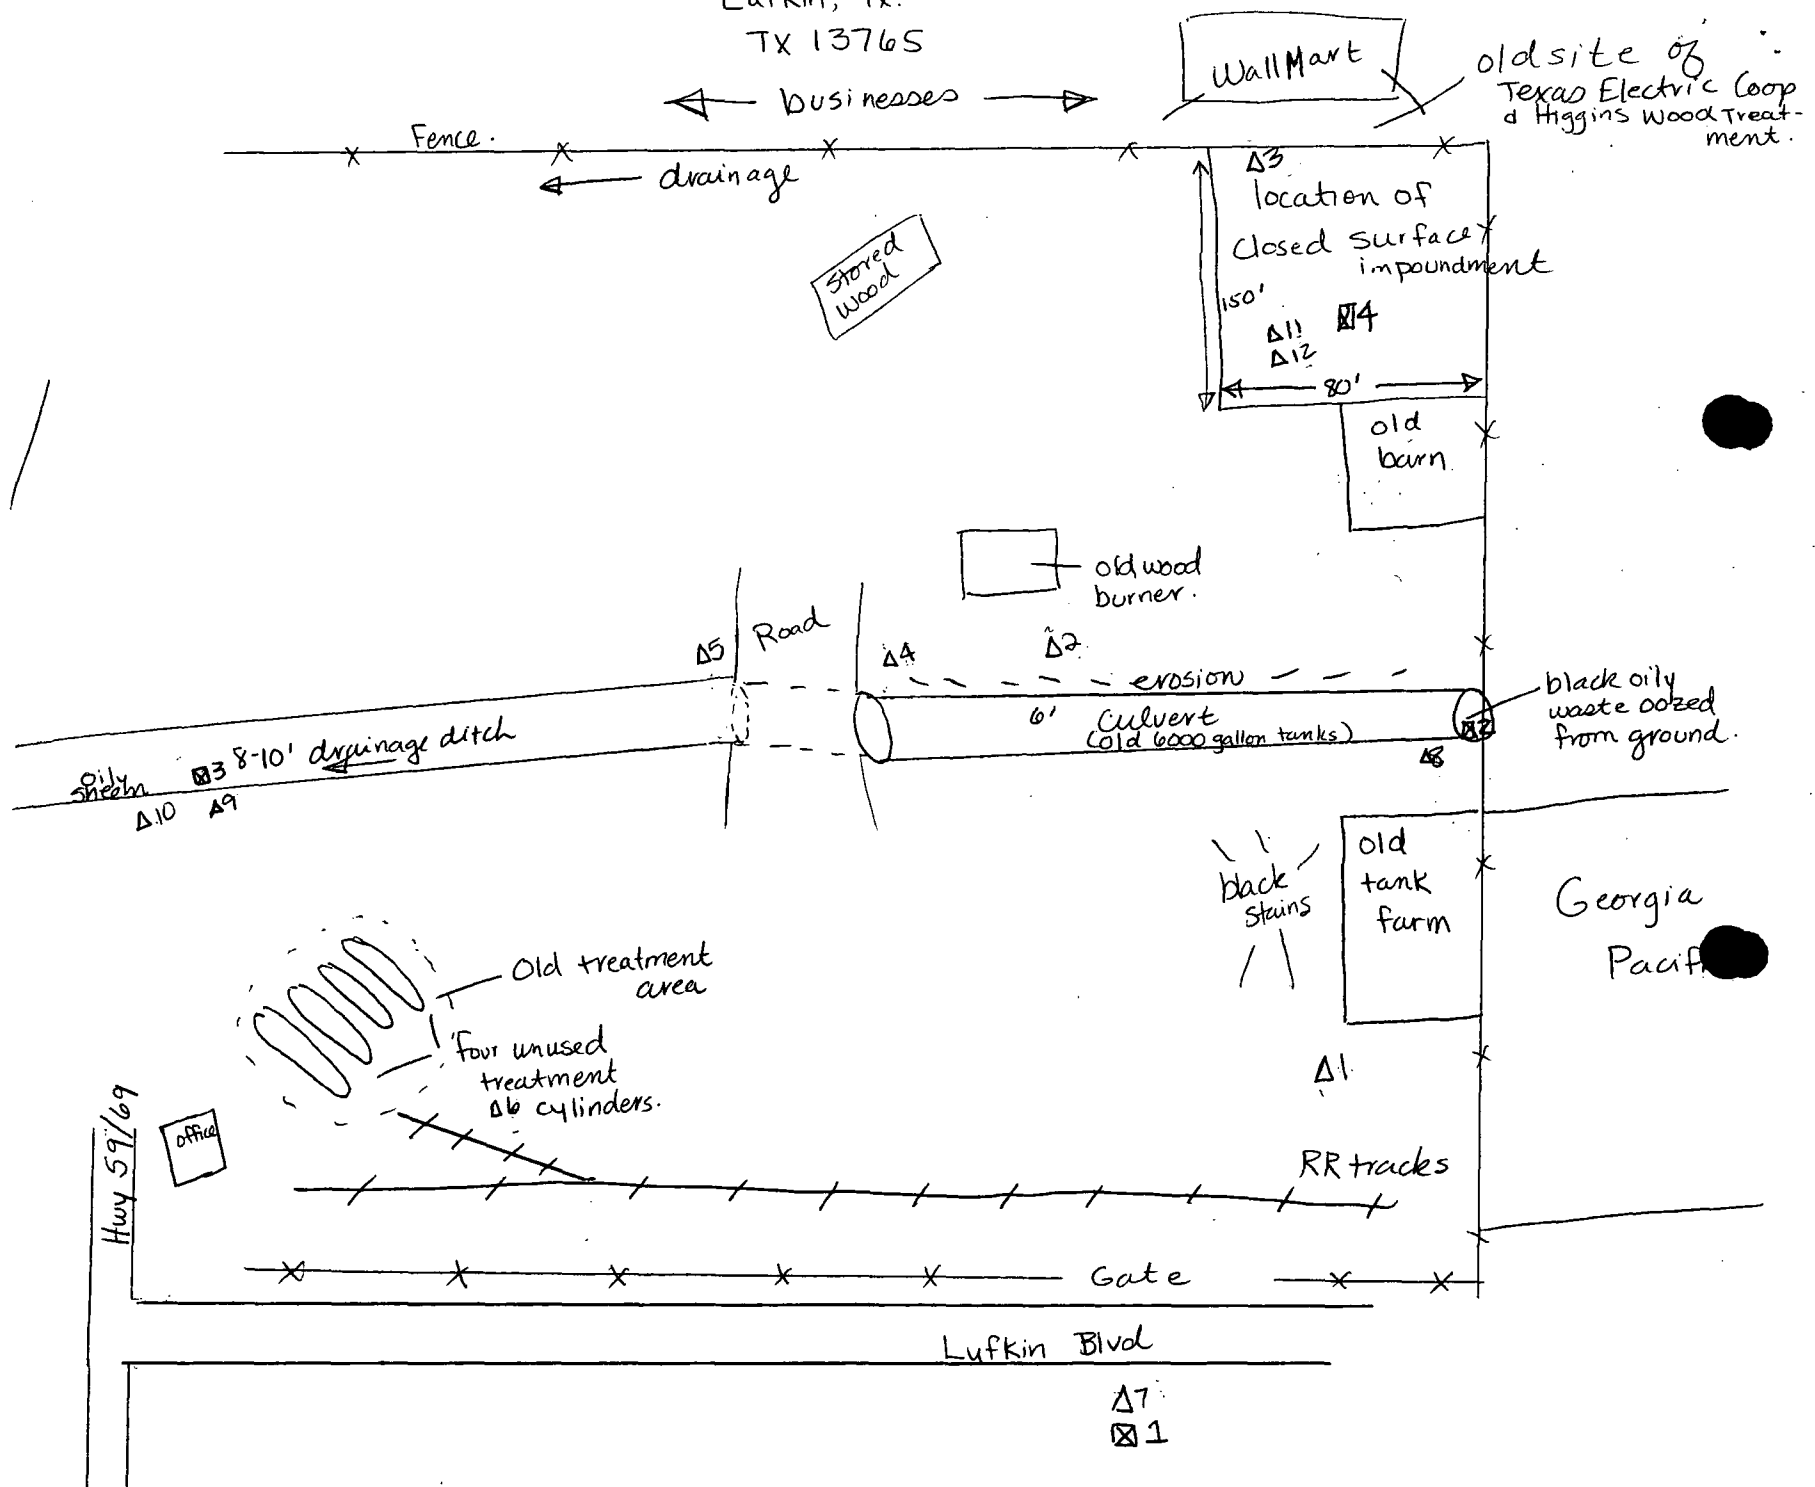 Lufkin, Tx.
TX 13765
WallMart
old site of
Texas Electric Coop
& Higgins Wood Treat-
ment.
businesses
Fence.
drainage
Δ3
location of
Closed Surface
impoundment
Stored
Wood
150'
Δ11
Δ12
4
80'
old
barn
old wood
burner.
Road
Δ5
Δ4
Δ2
erosion
6'
Culvert
(old 6000 gallon tanks)
2
Δ8
black oily
waste oozed
from ground.
8-10' drainage ditch
3
oily
sheehn
Δ10
Δ9
black
stains
old
tank
farm
Georgia
Pacif
Old treatment
area
four unused
treatment
Δ6 cylinders.
Δ1
office
Hwy 59/69
RR tracks
Gate
Lufkin Blvd
Δ7
1